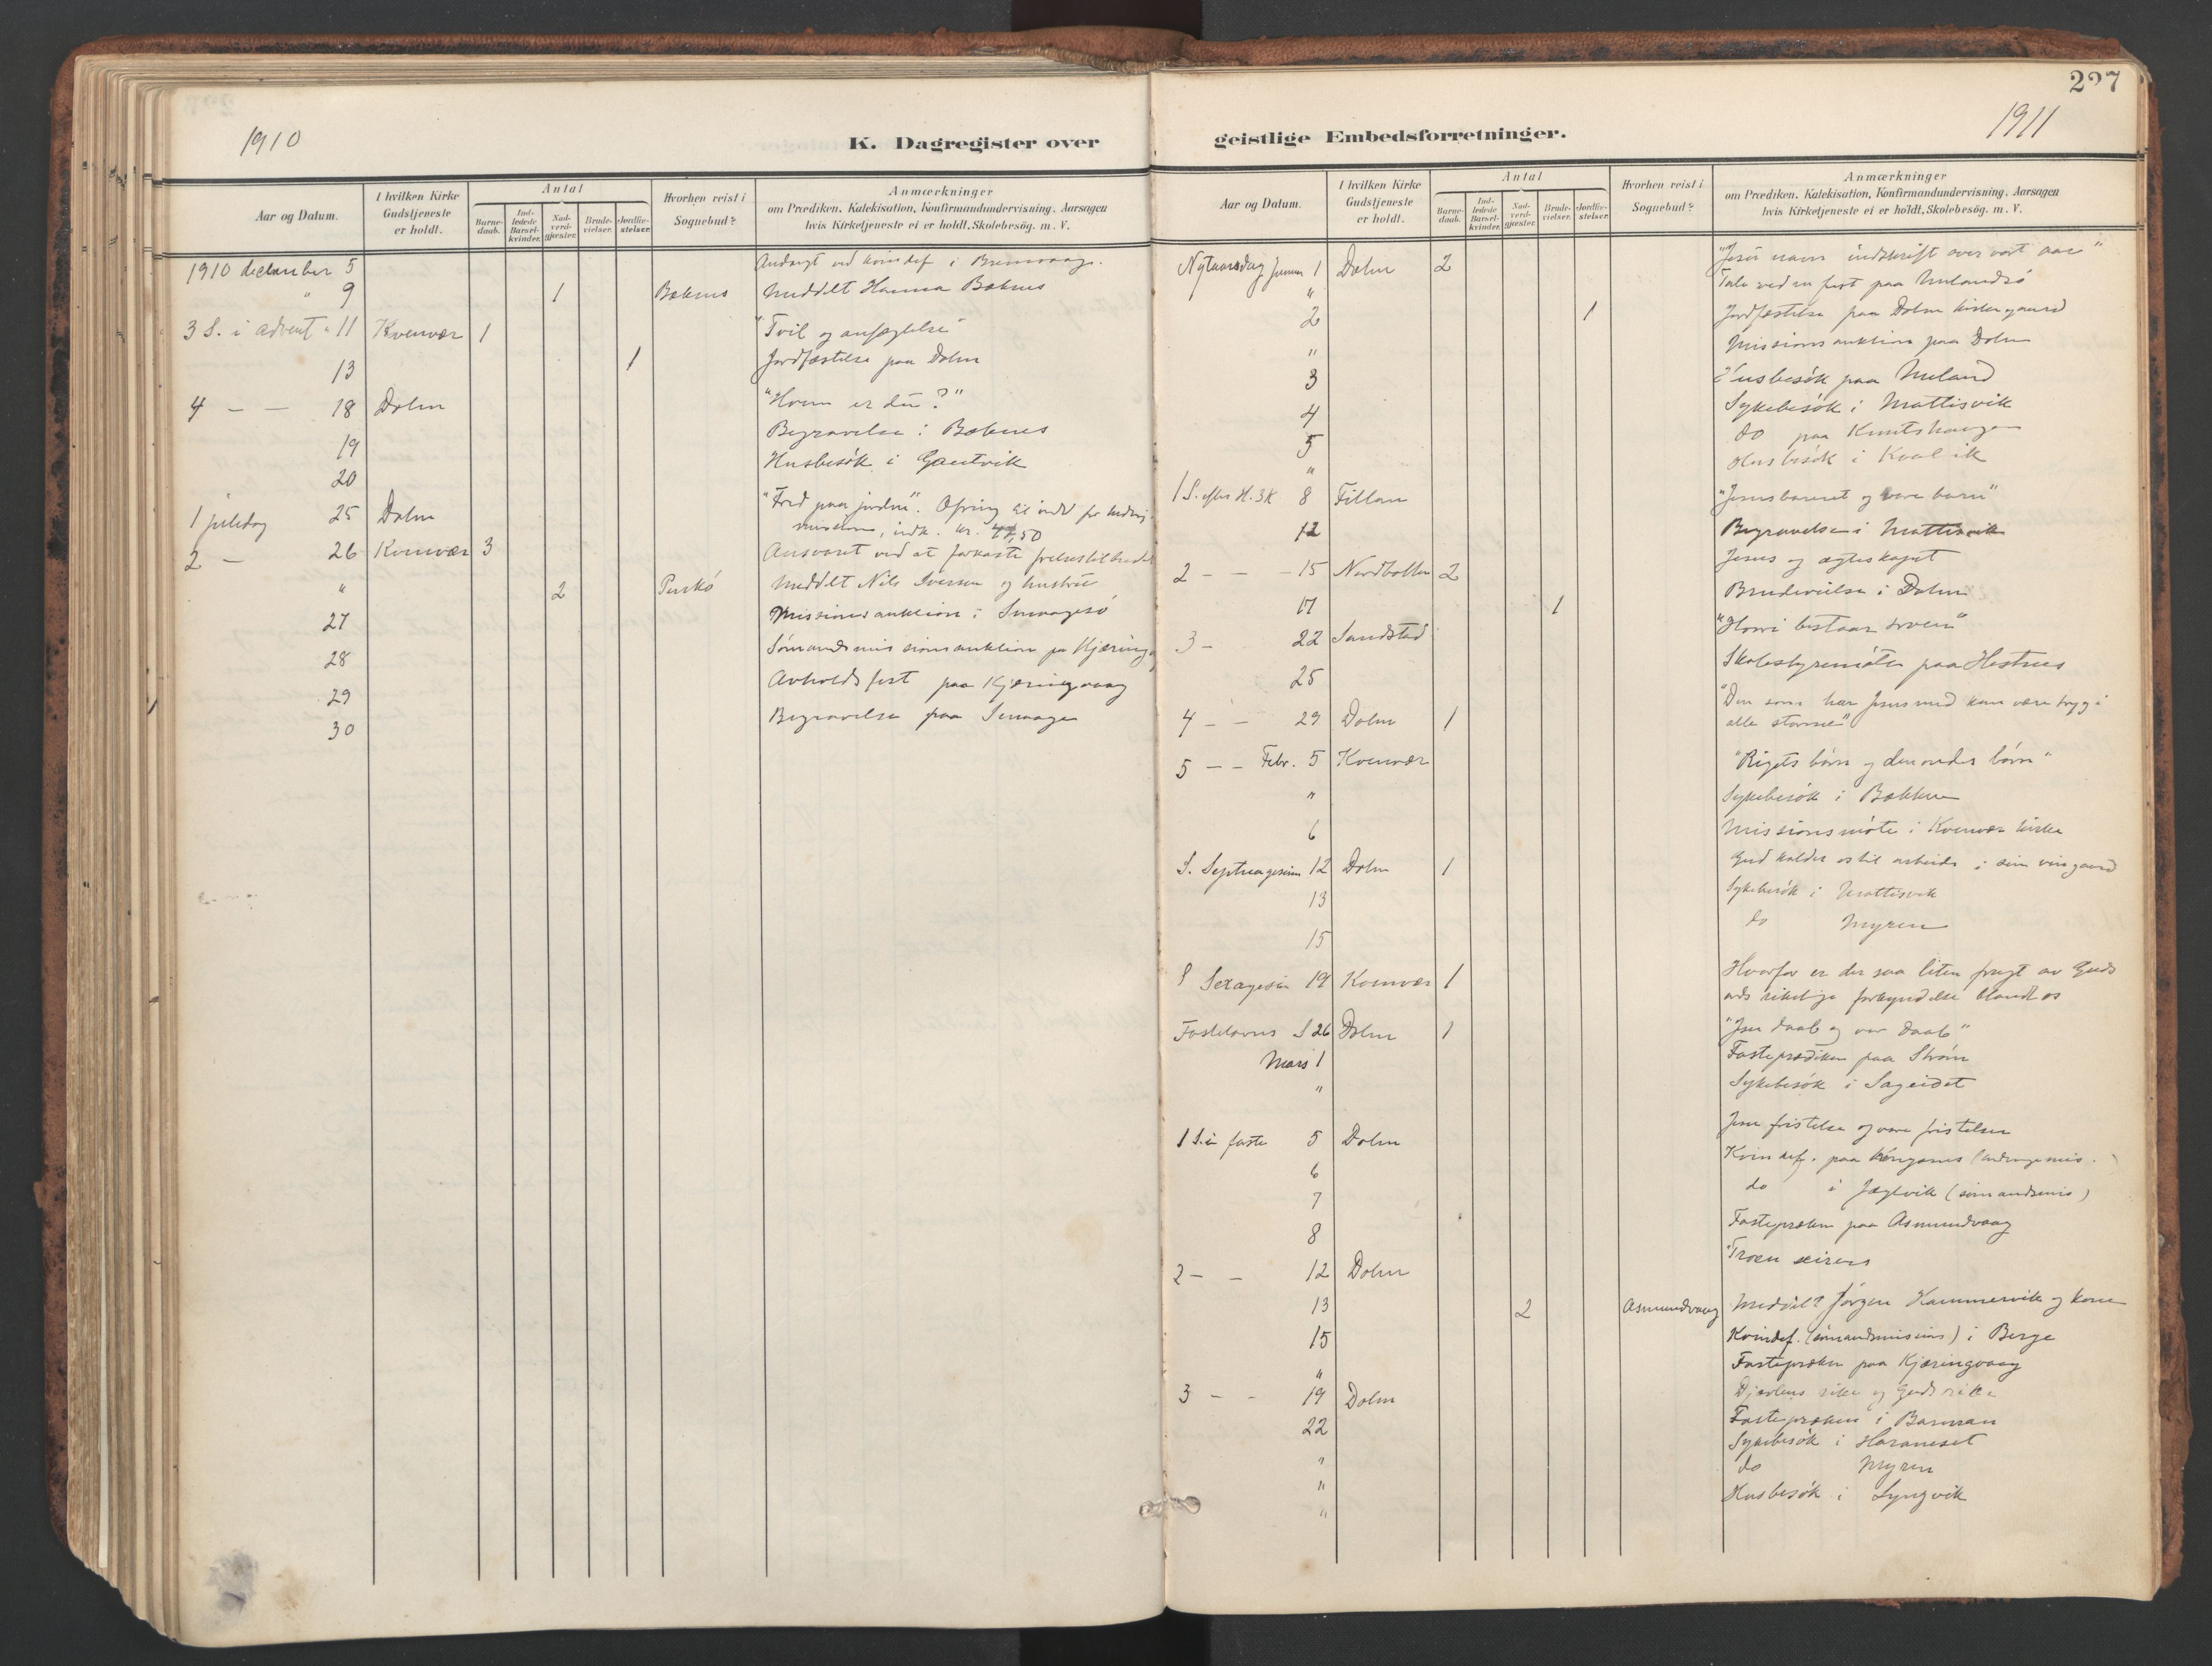 1910
K. Dagregister over
Aar og Datum.
I hvilken Kirke Gudstjeneste er holdt.
Antal
Barne-daab.
Ind-ledede Barsel-kvinder.
Nad-verd-gjæster.
Brude-vielser.
Jordfæ-stelser.
Hvorhen reist i Sognebud?
Anmærkninger
om Prædiken, Katekisation, Konfirmandundervisning, Aarsagen
hvis Kirketjeneste ei er holdt, Skolebesøg. m. V.
1910 december 5 Andagt ved kvindef i
" 9 1 Bæknes Meddelt Hanna Bæknes
3 S. i advent " 11 Kvenvær 1 "Tvil og anfægtelse"
13 1 Jordfæstelse paa Dolm
4 – – 18 Dolm "Hvem er du?"
19 Begravelse i Bæknes
20 Husbesøk i Gautvik
1 juledag 25 Dolm "Fred paa jorden". Ofring til indl for
indk. kr. 50
2 – 26 Kvenvær 3 Ansvaret ved at forkaste frelsestilbudet
" 2 Meddelt Nils Iversen og hustru
27 Missionsauktion i
28 Sømandsmissionsauktion pa Kjæring
29 Avholdsfest paa Kjæringvaag
30 Begravelse paa
297
1911
geistlige Embedsforretninger.
Aar og Datum.
I hvilken Kirke Gudstjeneste er holdt.
Antal
Barne-daab.
Ind-ledede Barsel-kvinder.
Nad-verd-gjæster.
Brude-vielser.
Jordfæ-stelser.
Hvorhen reist i Sognebud?
Anmærkninger
om Prædiken, Katekisation, Konfirmandundervisning, Aarsagen
hvis Kirketjeneste ei er holdt, Skolebesøg. m. V.
Nytaarsdag Januar 1 Dolm 2 "Jesu navn indskrift over vort aar"
" Tale ved en fest paa
2 1 Jordfæstelse paa Dolm kirkegaard
" Missionsauktion paa Dolm
3 Husbesøk paa Meland
4 Sykebesøk i Mattisvik
5 do paa Knutshaugen
" Husbesøk i
1 S. efter H. 3 K 8 Fillan "Jesusbarnet og vore barn"
12 Begravelse i Mattisvik
2 – – – 15 Nordbotten 2 Jesus og ægteskapet
17 1 Brudevielse i Dolm
3 – 22 Sandstad "Hvori bestaar troen"
25 Skolestyremøte paa Hestnes
4 – – 29 Dolm 1 "Den som har Jesus med kan være tryg i
alle storme"
5 – – Febr. 5 Kvenvær "Rigets børn og den ondes børn"
" Sykebesøk i Bækken
6 Missionsmøte i Kvenvær kirke
S. Septuagesima 12 Dolm 1 Gud kalder os til arbeide i sin vingaard
13 Sykebesøk i Mattisvik
15 do Myren
S Sexagesim 19 Kvenvær 1 Hvorfor er der saa liten frugt av Guds
ords rikelige forkyndelse blandt os
Fastelavns S 26 Dolm 1 "Jesu daab og vor daab"
Mars 1 Fasteprædiken paa Strøm
" Sykebesøk i Sageidet
1 S. i faste 5 Dolm Jesu fristelse og vore fristelser
6 Kvindef. paa
7 do i Jægtvik (sømandsmis)
8 Fastepræken paa Asmundvaag
2 – – 12 Dolm "Troen seirer
13 2 Asmundvaag Meddelt Jørgen Hammervik og kone
15 Kvindef. (sømandsmissions) i Berge
" Fastepræken paa Kjæringvaag
3 – – 19 Dolm Djævlens rike og Guds rike
22 Fastepræken i Barman
" Sykebesøk i
" do Myren
" Husbesøk i Lyngvik